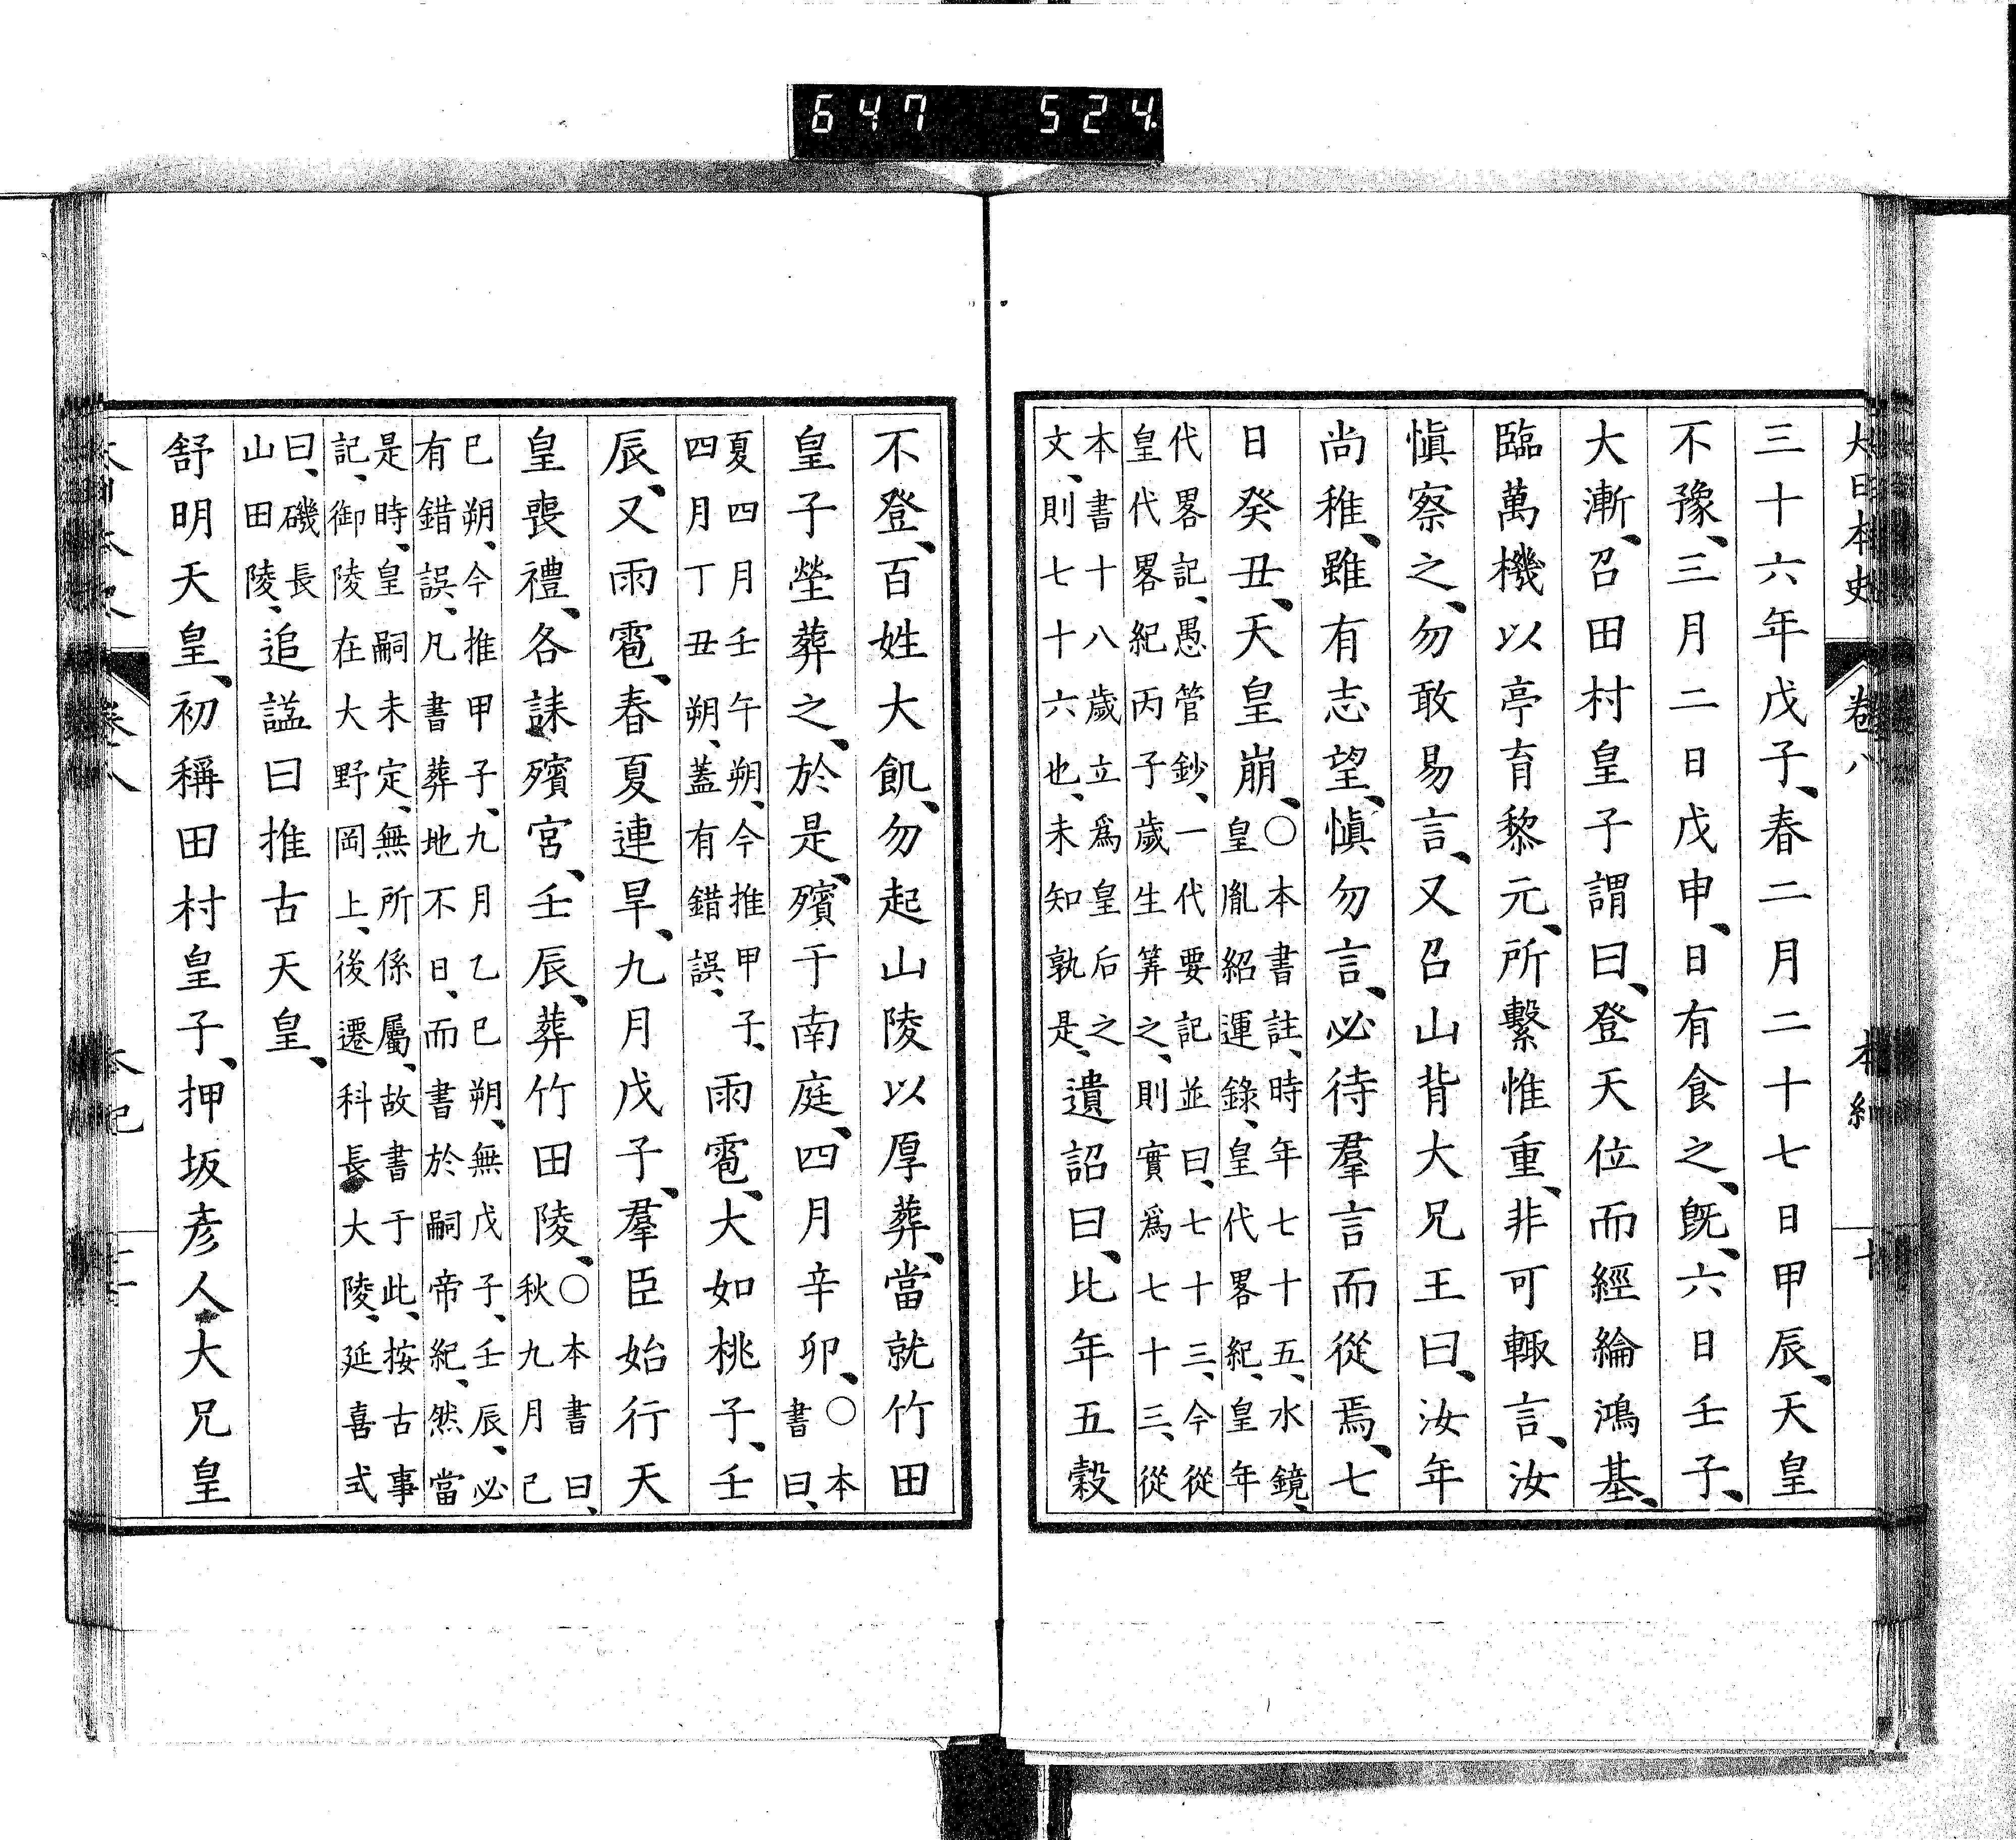 647 524
大日本史 卷八 本紀 十
三十六年戊子、春二月二十七日甲辰、天皇
不豫、三月二日戊申、日有食之、既、六日壬子、
大漸、召田村皇子謂曰、登天位而經綸鴻基、
臨萬機以亭育黎元、所繫惟重、非可輙言、汝
愼察之、勿敢易言、又召山背大兄王曰、汝年
尚稚、雖有志望、愼勿言、必待羣言而從焉、七
日癸丑、天皇崩、○本書註、時年七十五、水鏡、皇胤紹運錄、皇代畧紀、皇年
代畧記、愚管鈔、一代要記並曰、七十三、今從皇代畧紀丙子歲生筭之、則實爲七十三、從
本書十八歲立爲皇后之文、則七十六也、未知孰是、遺詔曰、比年五穀
不登、百姓大飢、勿起山陵以厚葬、當就竹田
皇子塋葬之、於是、殯于南庭、四月辛卯、○本書曰、
夏四月壬午朔、今推甲子、四月丁丑朔、蓋有錯誤、雨雹、大如桃子、壬
辰、又雨雹、春夏連旱、九月戊子、羣臣始行天
皇喪禮、各誄殯宮、壬辰、葬竹田陵、○本書曰、秋九月己
巳朔、今推甲子、九月乙巳朔、無戊子、壬辰、必有錯誤、凡書葬地不日、而書於嗣帝紀、然當
是時、皇嗣未定、無所係屬、故書于此、按古事記、御陵在大野岡上、後遷科長大陵、延喜式
曰、磯長山田陵、追諡曰推古天皇、
舒明天皇、初稱田村皇子、押坂彥人大兄皇